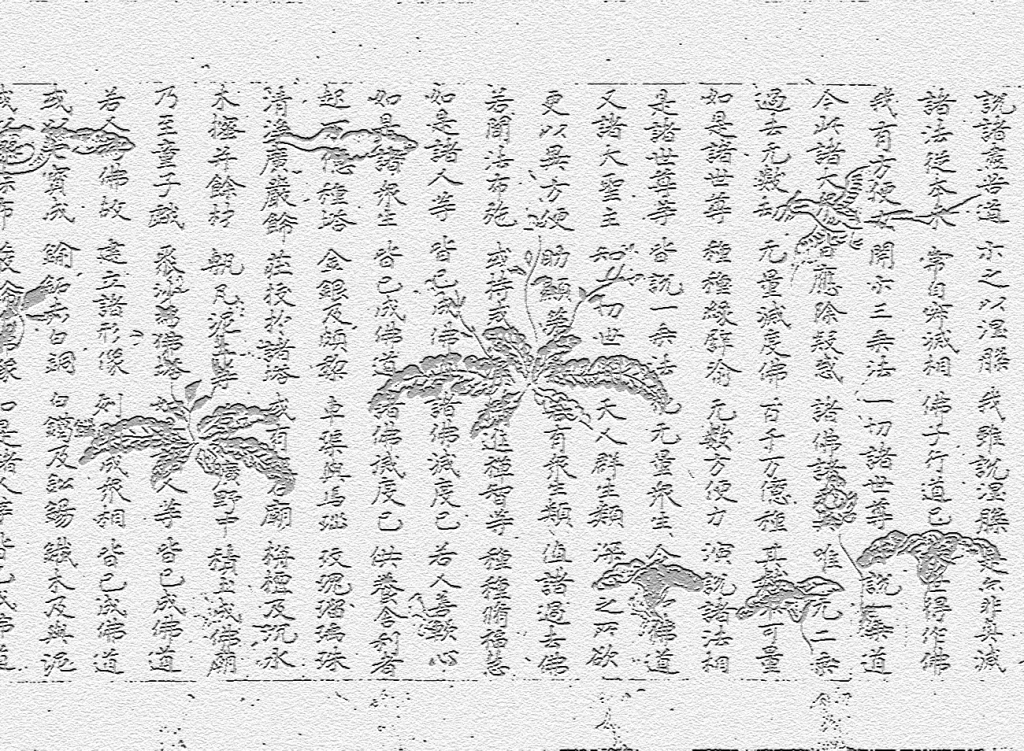 說諸盡苦道 示之以涅槃 我雖說涅槃 是亦非真滅
諸法從本來 常自寂滅相 佛子行道已 世得作佛
我有方便力 開示三乘法 一切諸世尊 說一乘道
今此諸大 皆應除疑惑 諸佛語異 唯无二乘
過去无數劫 无量滅度佛 百千万億種 其數不可量
如是諸世尊 種種緣譬喻 无數方便力 演說諸法相
是諸世尊等 皆說一乘法 化无量眾生 令佛道
又諸大聖主 知一切世 天人群生類 深之所欲
更以異方便 助顯第 若有眾生類 值諸過去佛
若聞法布施 或持戒 進禪智等 種種脩福慧
如是諸人等 皆已成佛 諸佛滅度已 若人善軟心
如是諸眾生 皆已成佛道 諸佛滅度已 供養舍利者
起万億種塔 金銀及頗黎 車磲與馬瑙 玫瑰琉璃珠
清淨廣嚴飾 莊挍於諸塔 或有石廟 栴檀及沉水
木櫁并餘材 瓦泥土等 曠野中 積土成佛廟
乃至童子戲 聚沙為佛塔 如人等 皆已成佛道
若人為佛故 建立諸形像 刻成眾相 皆已成佛道
或以七寶成 鍮鉐赤白銅 白鑞及鉛錫 鐵木及與泥
或漆布 嚴飾佛像 如是諸人等 皆已成佛道